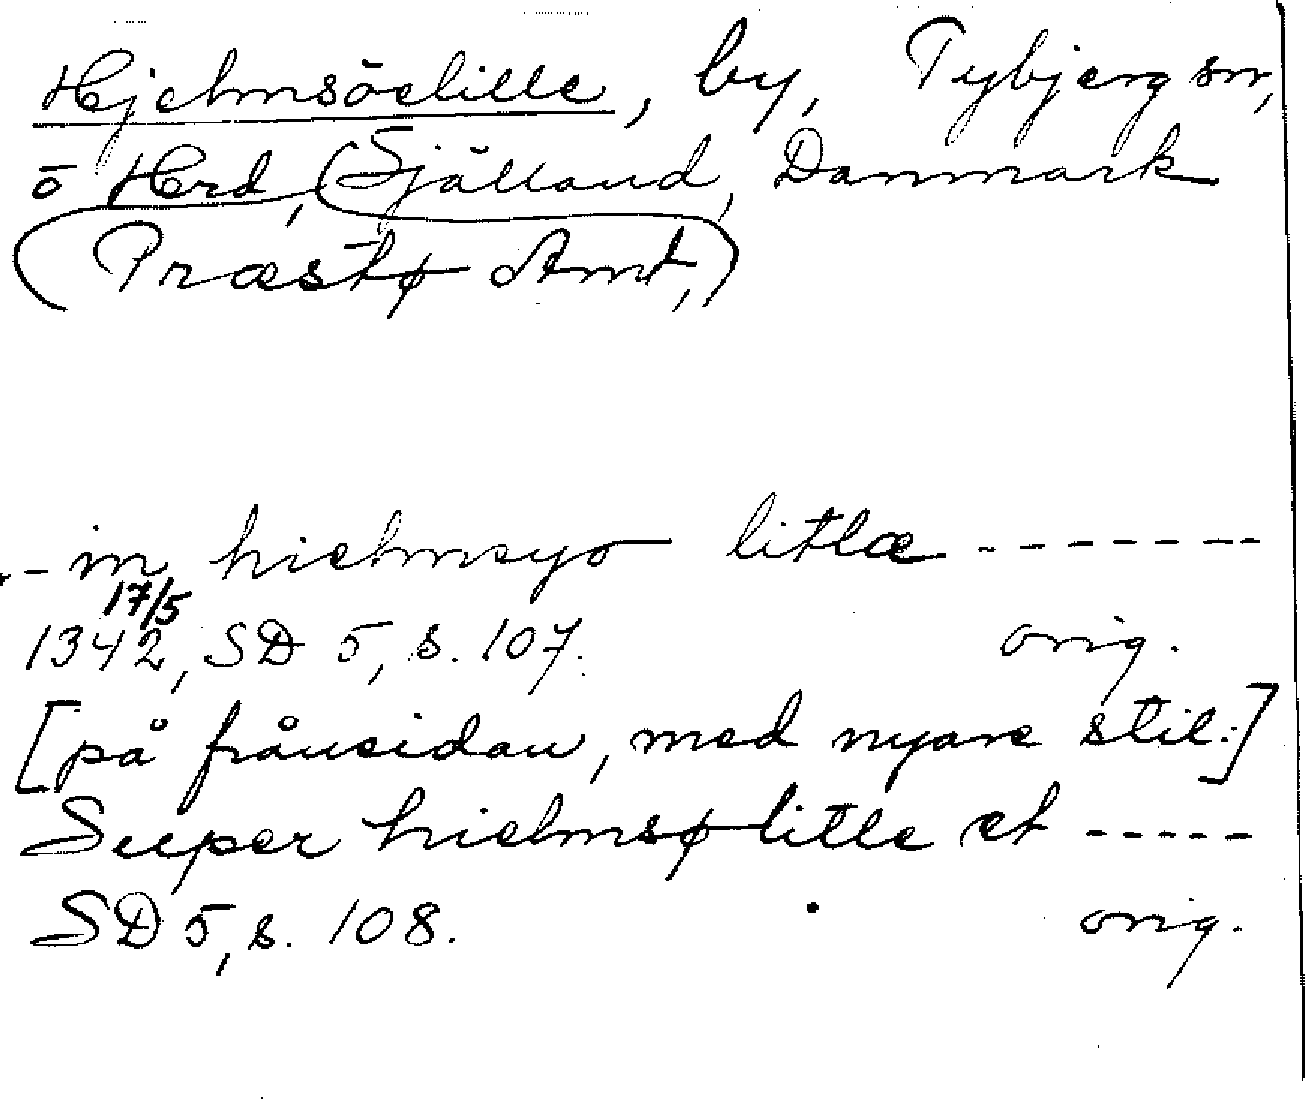 Hjelmsölille, by, Tybjerg sn,
o Hrd, (Själland, Danmark
(Præstø Amt,)
- - in hielmsyo litlæ - - - - - - -
17/5
1342, SD 5, s. 107. orig.
[på frånsidan, med nyare stil:]
Super hielmsø litle et - - - - -
SD 5, s. 108. orig.